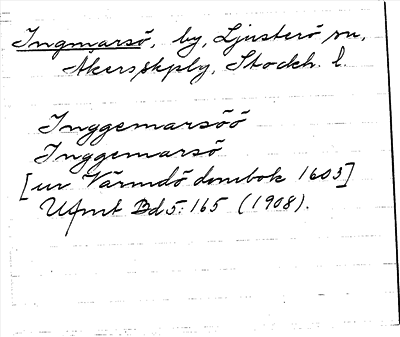 Ingmarsö, by, Ljusterö sn,
Åkers skply, Stockh. l.
Inggemarsöö
Inggemarsö
[ur Värmdö dombok 1603]
Ufmt Bd 5: 165 (1908).